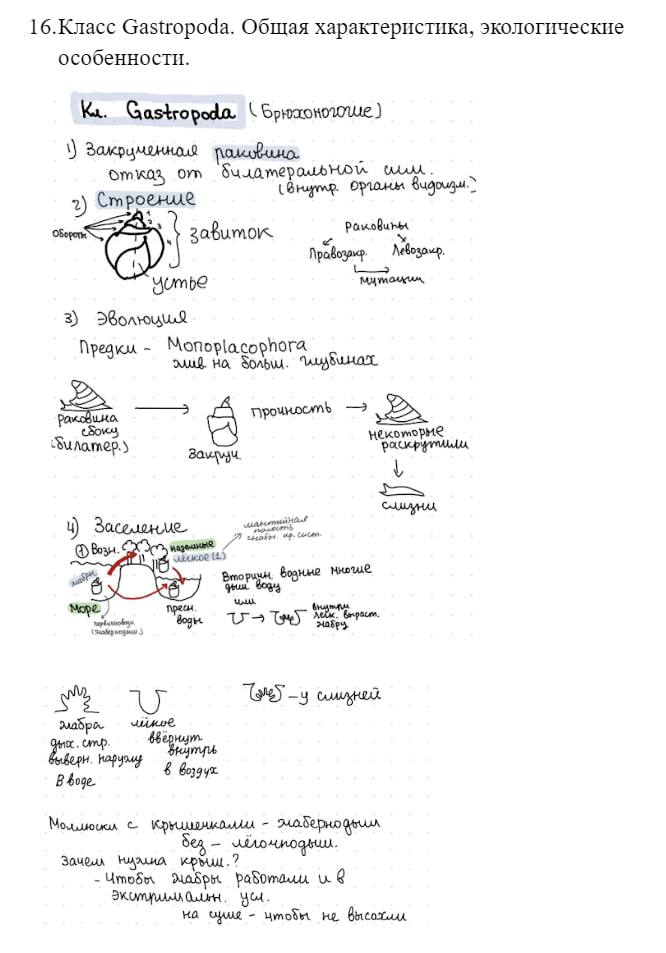 16.Класс Gastropoda. Общая характеристика, экологические
особенности.
Кл. Gastropoda (Брюхоногие)
1) Закрученная раковина
отказ от билатеральной сим.
(внутр. органы видоизм.)
2) Строение
Обороты
завиток
устье
Раковины
Правозакр. Левозакр.
мутации
3) Эволюция
Предки - Monoplacophora
жив. на больш. глубинах
раковина
сбоку
(билатер.)
Закруч
прочность
некоторые
раскрутили
слизни
4) Заселение
мантийная
полость
снабж. кр. сист.
1 Возн.
наземные
лёгкое (1.)
жабры
Море
первичновод.
(жабернодыш.)
пресн.
воды
Вторичн. водные многие
дыш воду
или
внутри
легк. выраст.
жабру
жабра
дых. стр.
выверн. наружу
В воде
лёгкое
ввёрнут.
внутрь
в воздух
- у слизней
Моллюски с крышечками - жабернодыш
без - лёгочнодыш.
Зачем нужна крыш.?
- Чтобы жабры работали и в
экстримальн. усл.
на суше - чтобы не высохли